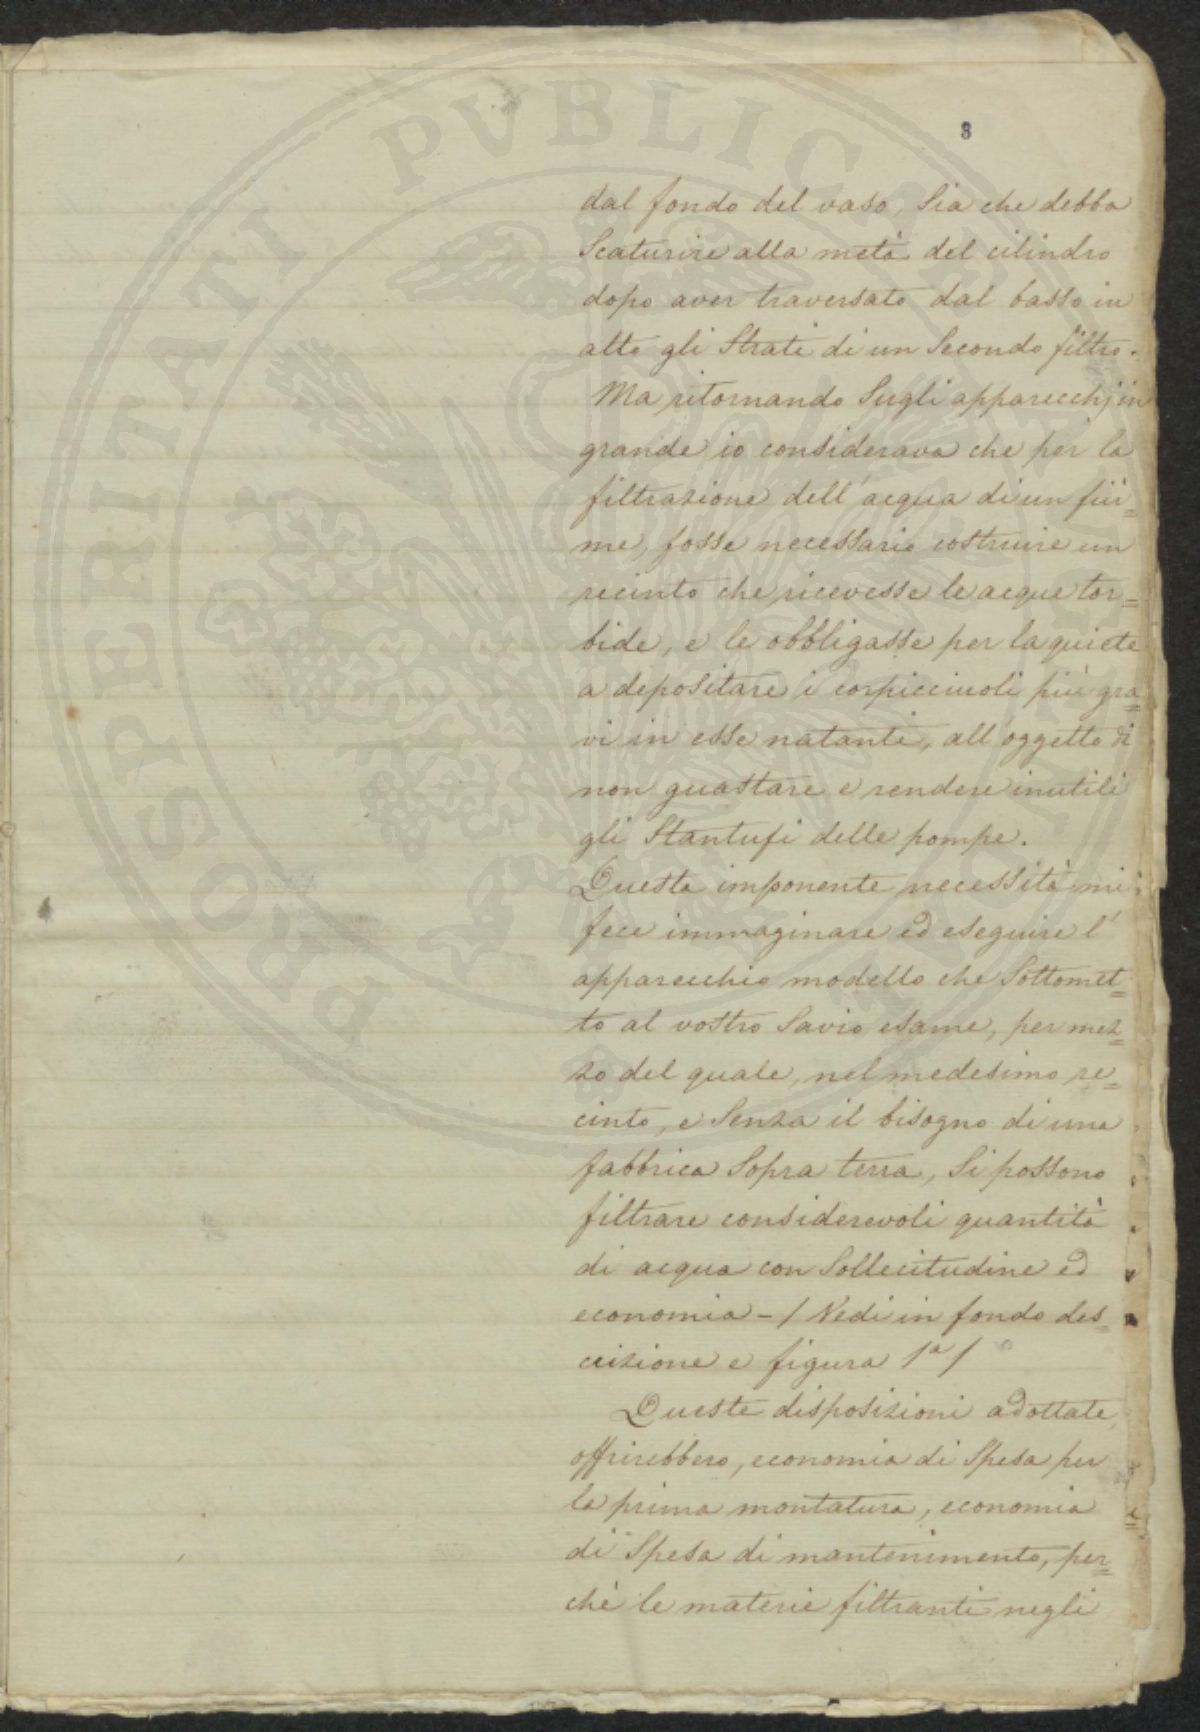 8
dal fondo del vaso, Sia che debba
Scaturire alla metà del cilindro
dopo aver traversato dal basso in
alto gli Strati di un Secondo filtro.
Ma ritornando Sugli apparecchj in
grande io considerava che per la
filtrazione dell'acqua di un fiu=
me, fosse necessario costruire un
recinto che ricevesse le acque tor=
bide, e le obbligasse per la quiete
a depositare i corpicciuoli più gra=
vi in esse natanti, all'oggetto di
non guastare e rendere inutili
gli Stantufi delle pompe.
Questa imponente necessità mi
fece immaginare ed eseguire l'
apparecchio modello che Sottomet=
to al vostro Savio esame, per mez=
zo del quale, nel medesimo re=
cinto, e Senza il bisogno di una
fabbrica Sopra terra, Si possono
filtrare considerevoli quantità
di acqua con Sollecitudine ed
economia - / Vedi in fondo des=
crizione e figura 1ª /
Queste disposizioni adottate,
offrirebbero, economia di Spesa per
la prima montatura, economia
di Spesa di mantenimento, per=
chè le materie filtranti negli
PROSPERITATI PVBLIC